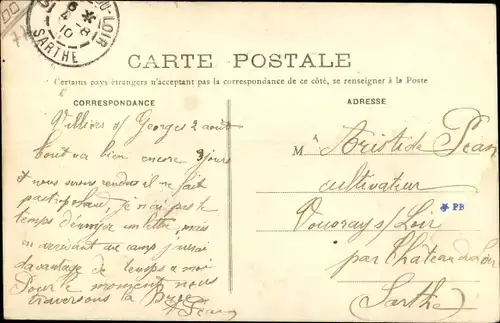 DU-LOIR
8
4
10
SARTHE
CARTE POSTALE
Certains pays étrangers n'acceptant pas la correspondance de ce côté, se renseigner à la Poste
CORRESPONDANCE
Villiers s/ Georges 2 août
tout va bien encore 3 jours
et nous serons rendus il ne fait
pas trop chaud je n'ai pas le
temps d'envoyer un lettre, mais
en arrivant au camp j'aurai
davantage de temps a moi
Pour le moment nous
traversons la Brie
ADRESSE
M Aristide Péan
cultivateur
Vouvray s/ Loir
par Château du Loir
(Sarthe)
PB